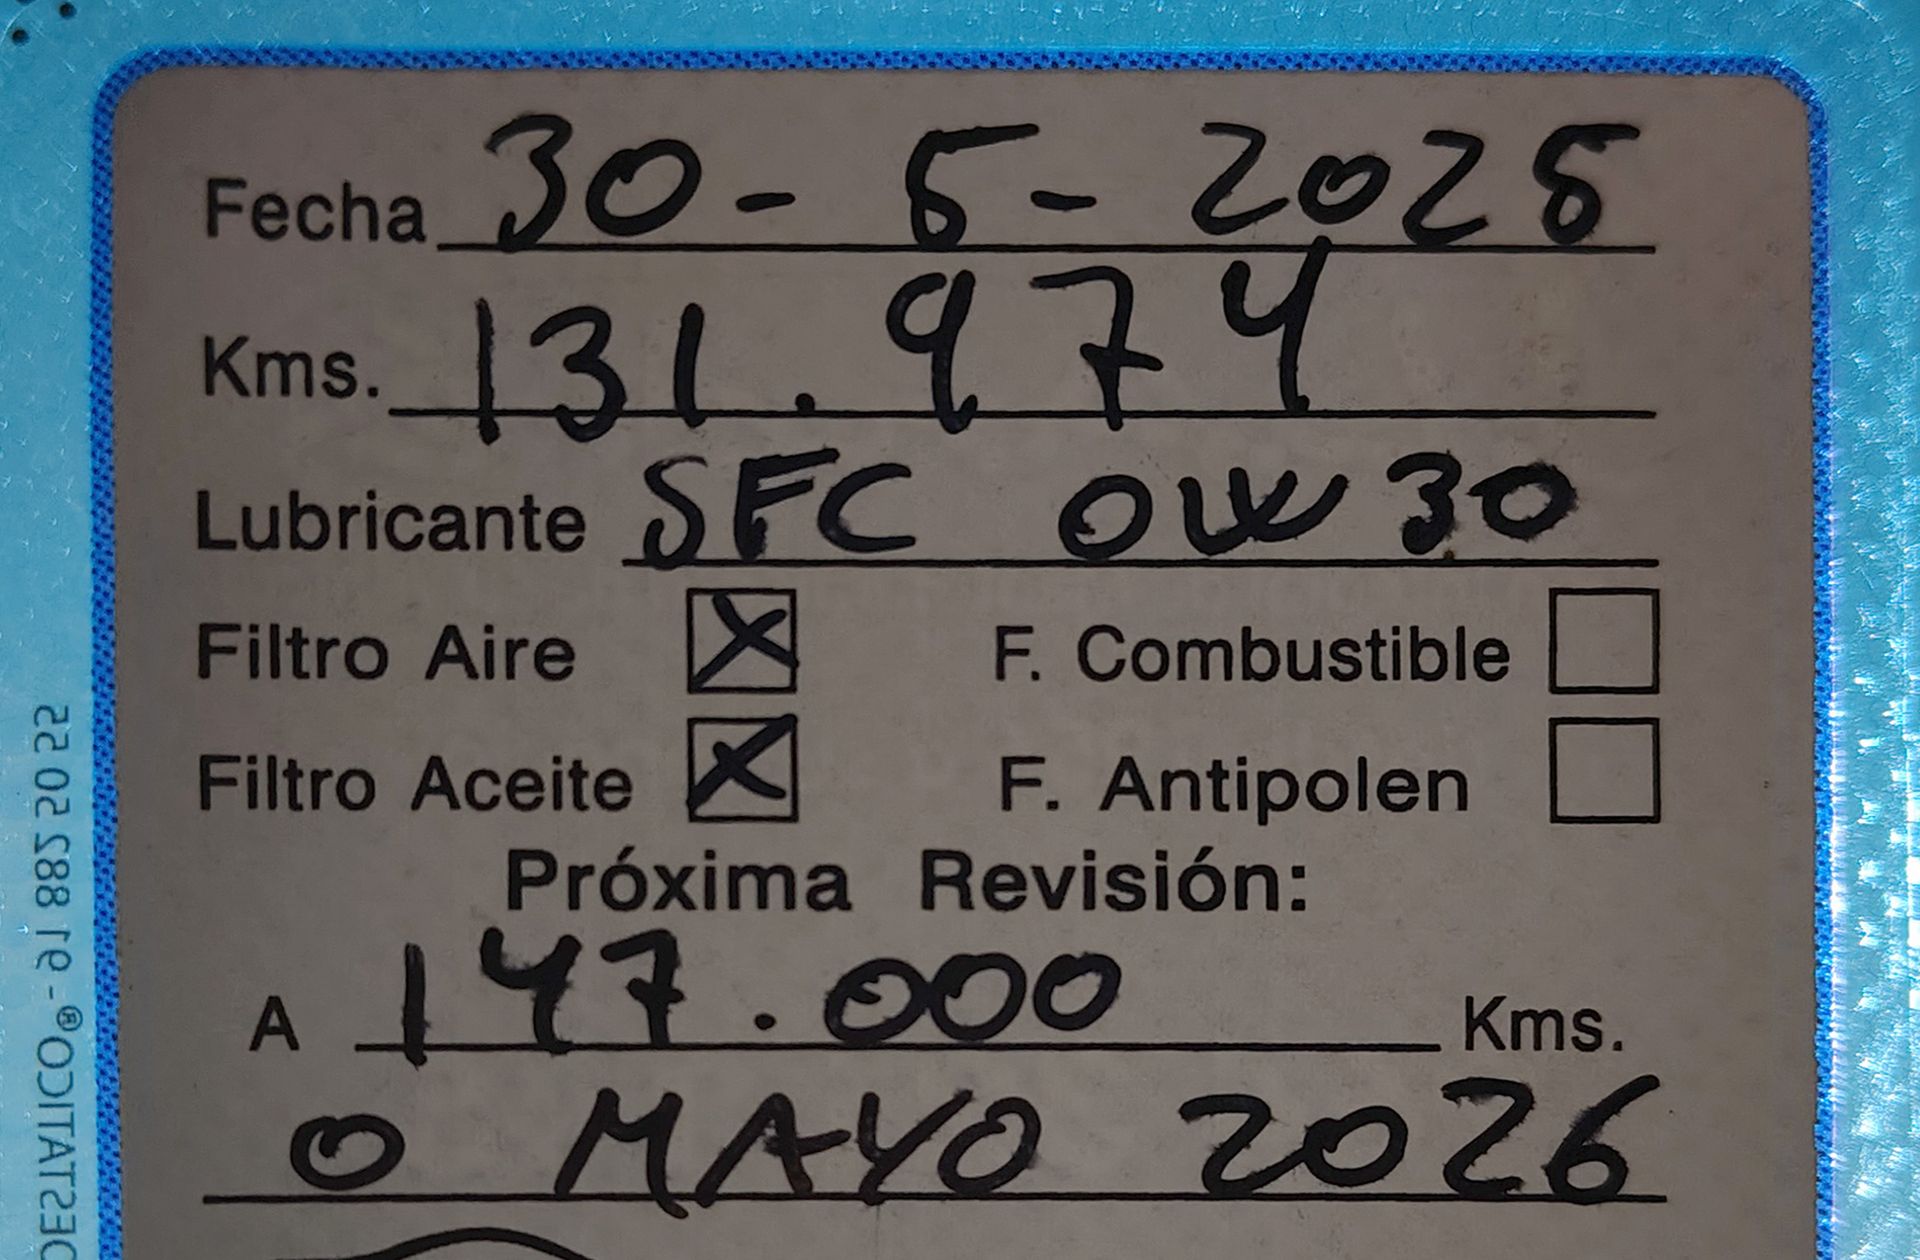 Fecha 30 - 5 - 2025
Kms. 131.974
Lubricante SFC 0W30
Filtro Aire X F. Combustible
Filtro Aceite X F. Antipolen
Próxima Revisión:
A 147.000 Kms.
O MAYO 2026